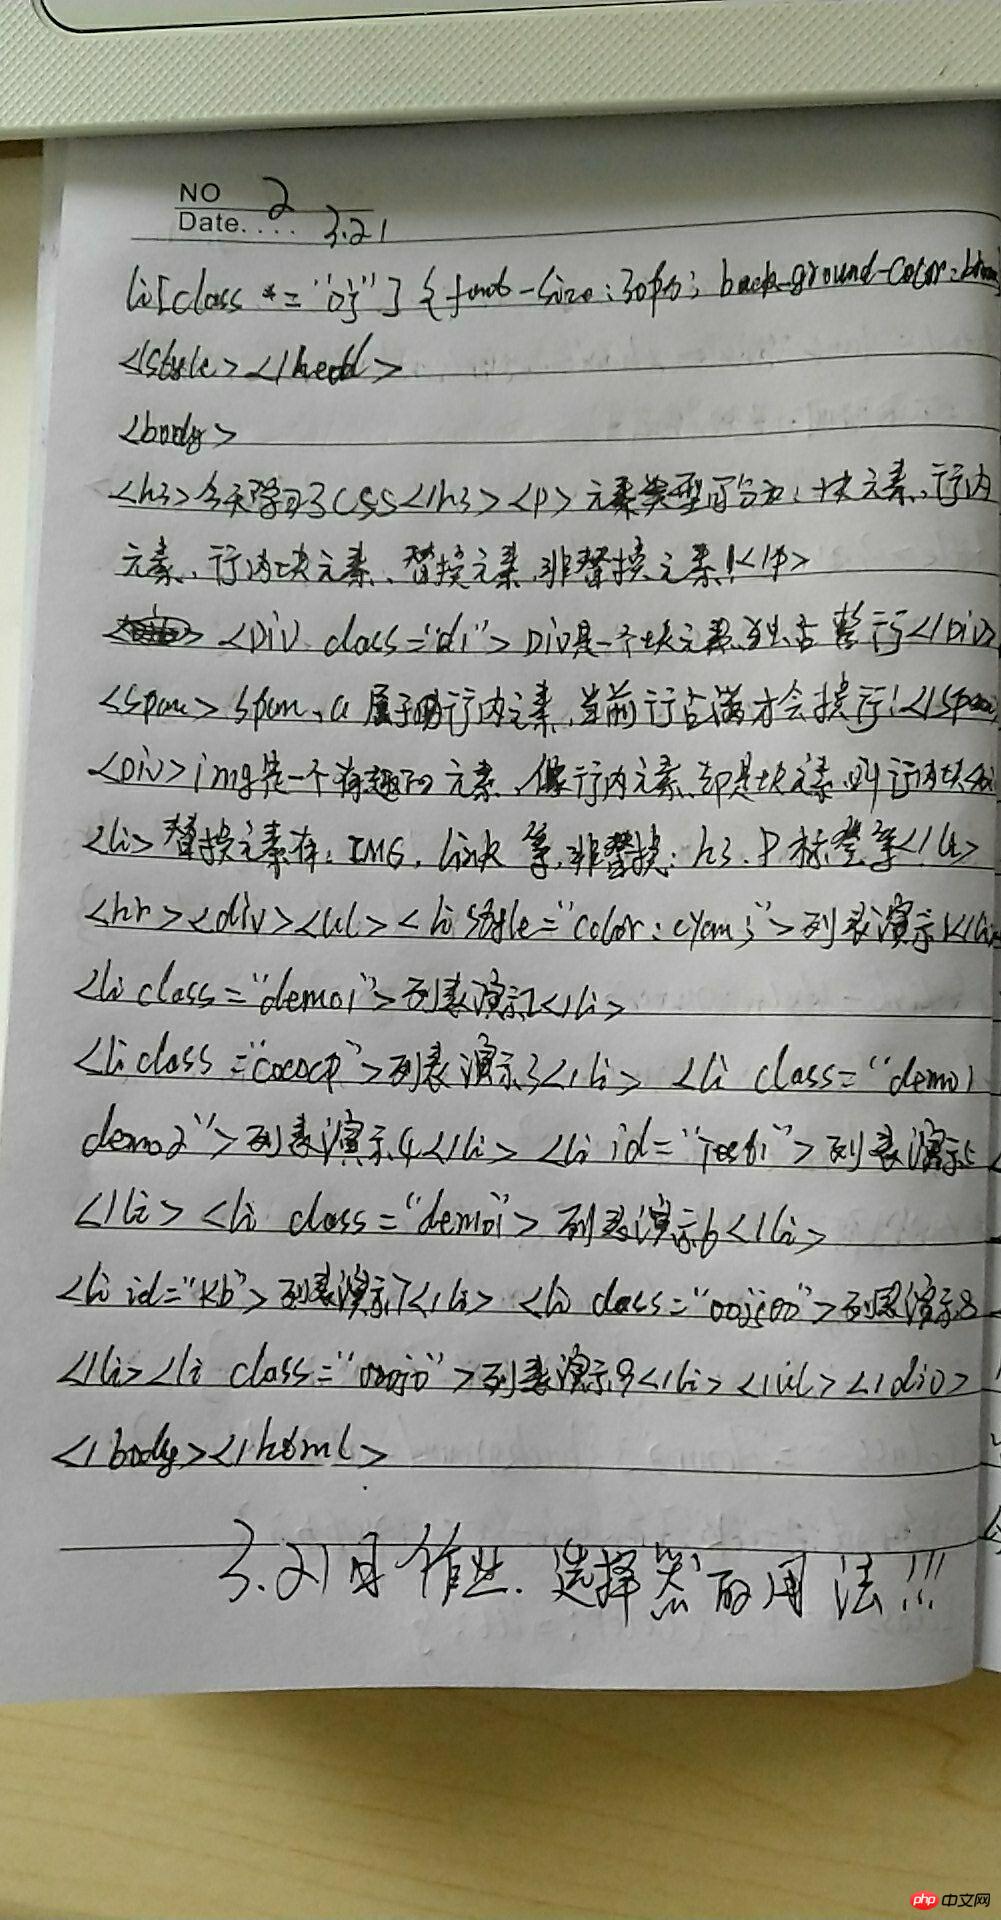 NO 2
Date.... 3.21
li[class *= "oj"] {font-size:30px; back-ground-color:
</style></head>
<body>
<h3>今天学习了CSS</h3><p>元素类型可分为:块元素、行内
元素、行内块元素、替换元素、非替换元素!</p>
<DIV class="di">DIV是一个块元素,独占整行</DIV>
<span>span、a属于行内元素,当前行占满才会换行!</span
<DIV>img是一个有趣的元素、像行内元素、却是块元素,叫行内块
<li>替换元素有:IMG, link等,非替换:h3、P标签等</li>
<hr><div><ul><li style="color:cyan;">列表演示1</li>
<li class="demo1">列表演示2</li>
<li class="cococp">列表演示3</li> <li class="demo1
demo2">列表演示4</li> <li id="test1">列表演示5
</li> <li class="demo1">列表演示6</li>
<li id="kb">列表演示7</li> <li class="oojoo">列表演示8
</li><li class="ooojo">列表演示9</li></ul></div>
</body></html>
3.21日作业.选择器的用法!!!
php 中文网